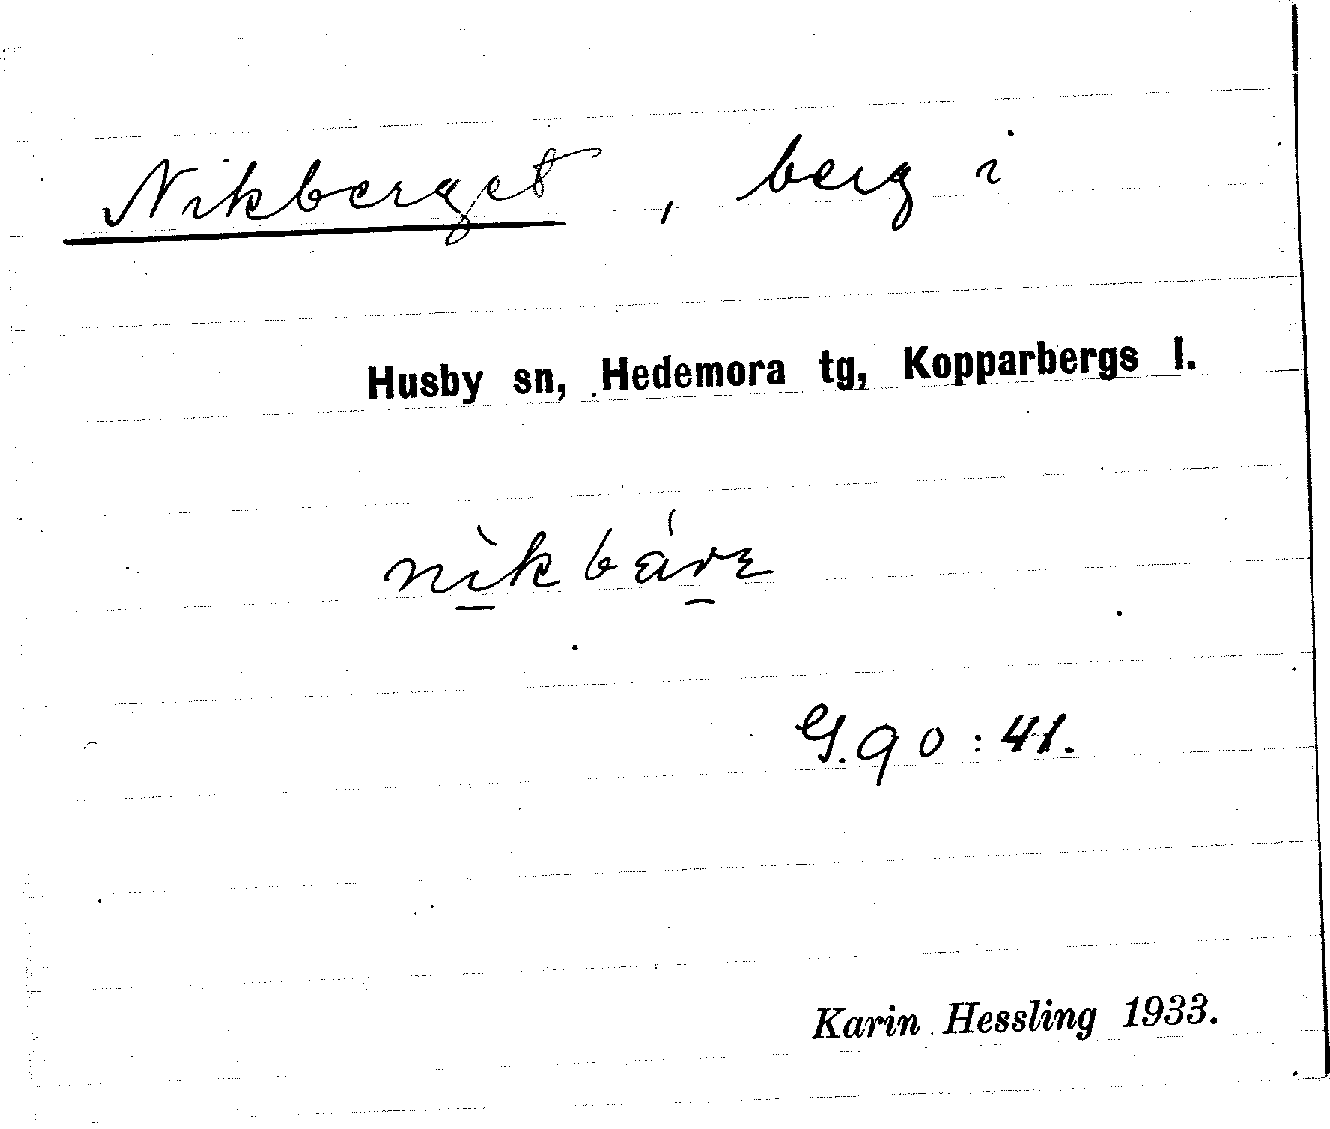 Nikberget, berg i
Husby sn, Hedemora tg, Kopparbergs l.
G. 90:41.
Karin Hessling 1933.